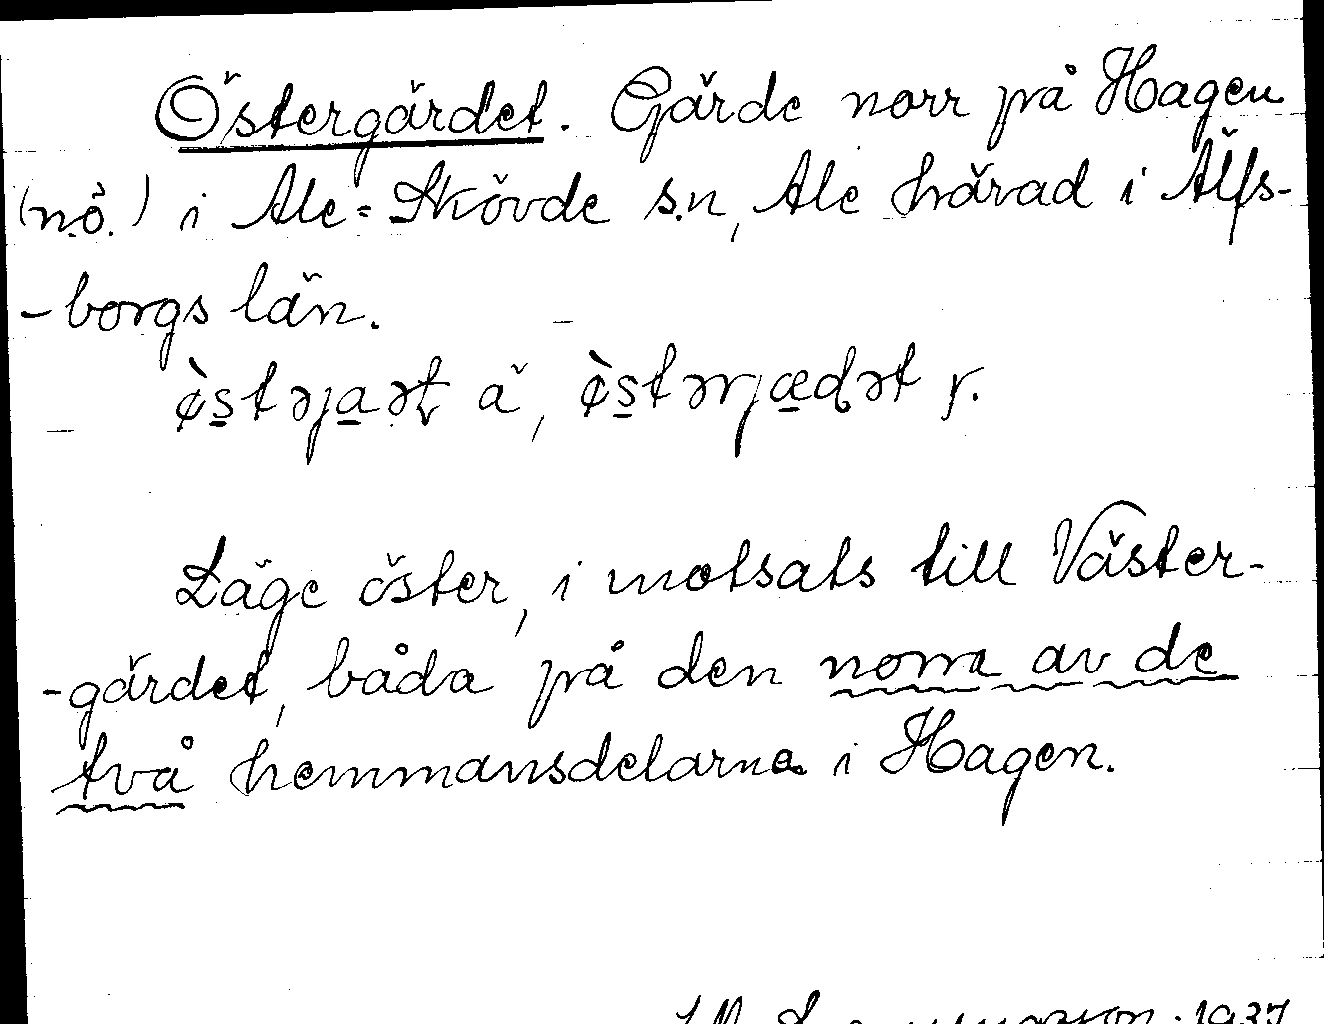 Östergärdet. Gärde norr på Hagen
(nö.) i Ale-Skövde s:n, Ale härad i Älfs-
-borgs län.
Läge öster, i motsats till Väster-
-gärdet, båda på den norra av de
två hemmansdelarna i Hagen.
1937